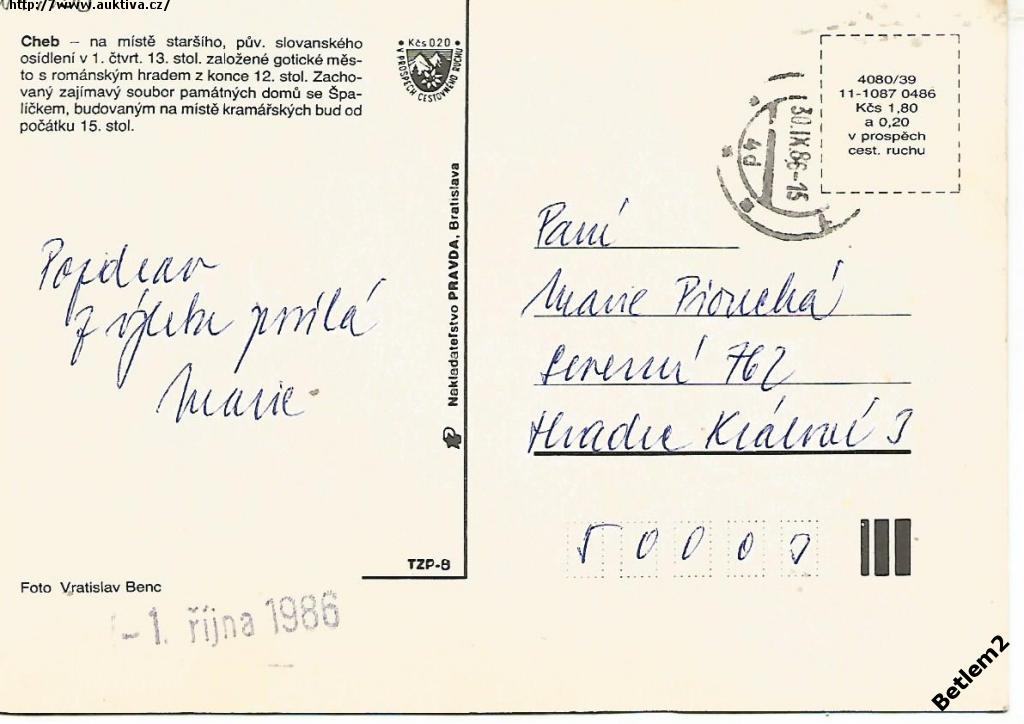 http://www.auktiva.cz/
Cheb – na místě staršího, pův. slovanského
osídlení v 1. čtvrt. 13. stol. založené gotické měs-
to s románským hradem z konce 12. stol. Zacho-
vaný zajímavý soubor památných domů se Špa-
líčkem, budovaným na místě kramářských bud od
počátku 15. stol.
Kčs 020
V PROSPĚCH CESTOVNÉHO RUCHU
4080/39
11-1087 0486
Kčs 1,80
a 0,20
v prospěch
cest. ruchu
30.IX.86-15
4d
Pozdrav
z výletu posílá
Marie
Nakladateľstvo PRAVDA, Bratislava
Paní
Marie
762
Hradec Králové
5 0 0 0
TZP-8
Foto Vratislav Benc
-1. října 1986
Betlem2